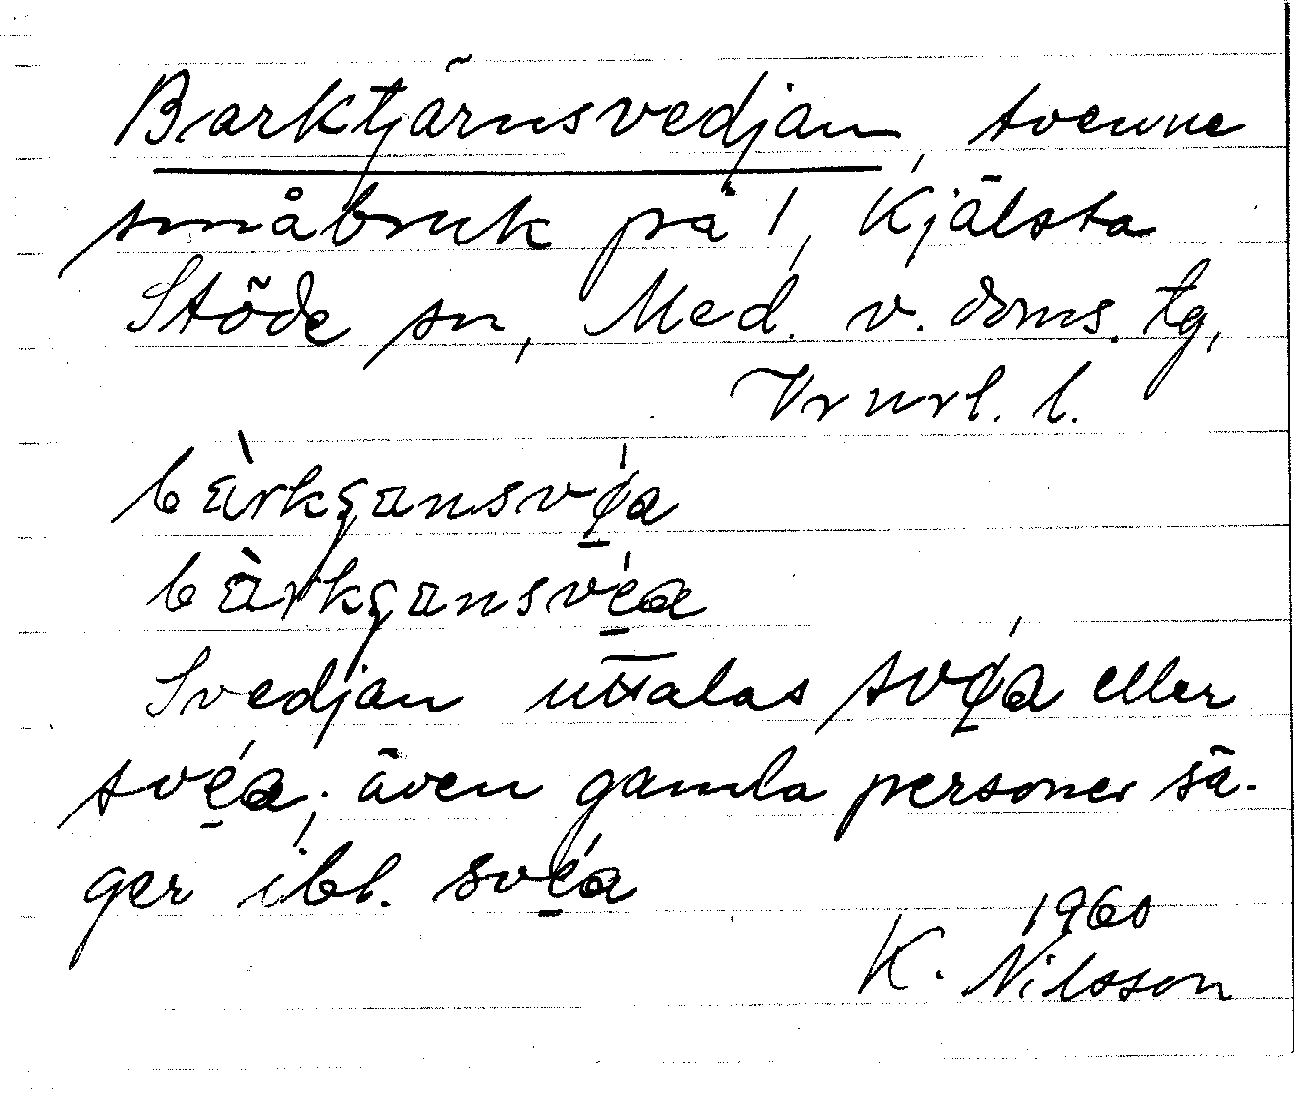 Barktjärnsvedjan, tvenne
småbruk på 1, Kjälsta
Stöde sn, Med. v. doms. tg,
Vrnrl. l.
bàrkçansvé̱a
bàrkçansvé̱a
Svedjan uttalas své̱a eller
své̱a; även gamla personer sä-
ger ibl. své̱a
1960
K. Nilsson